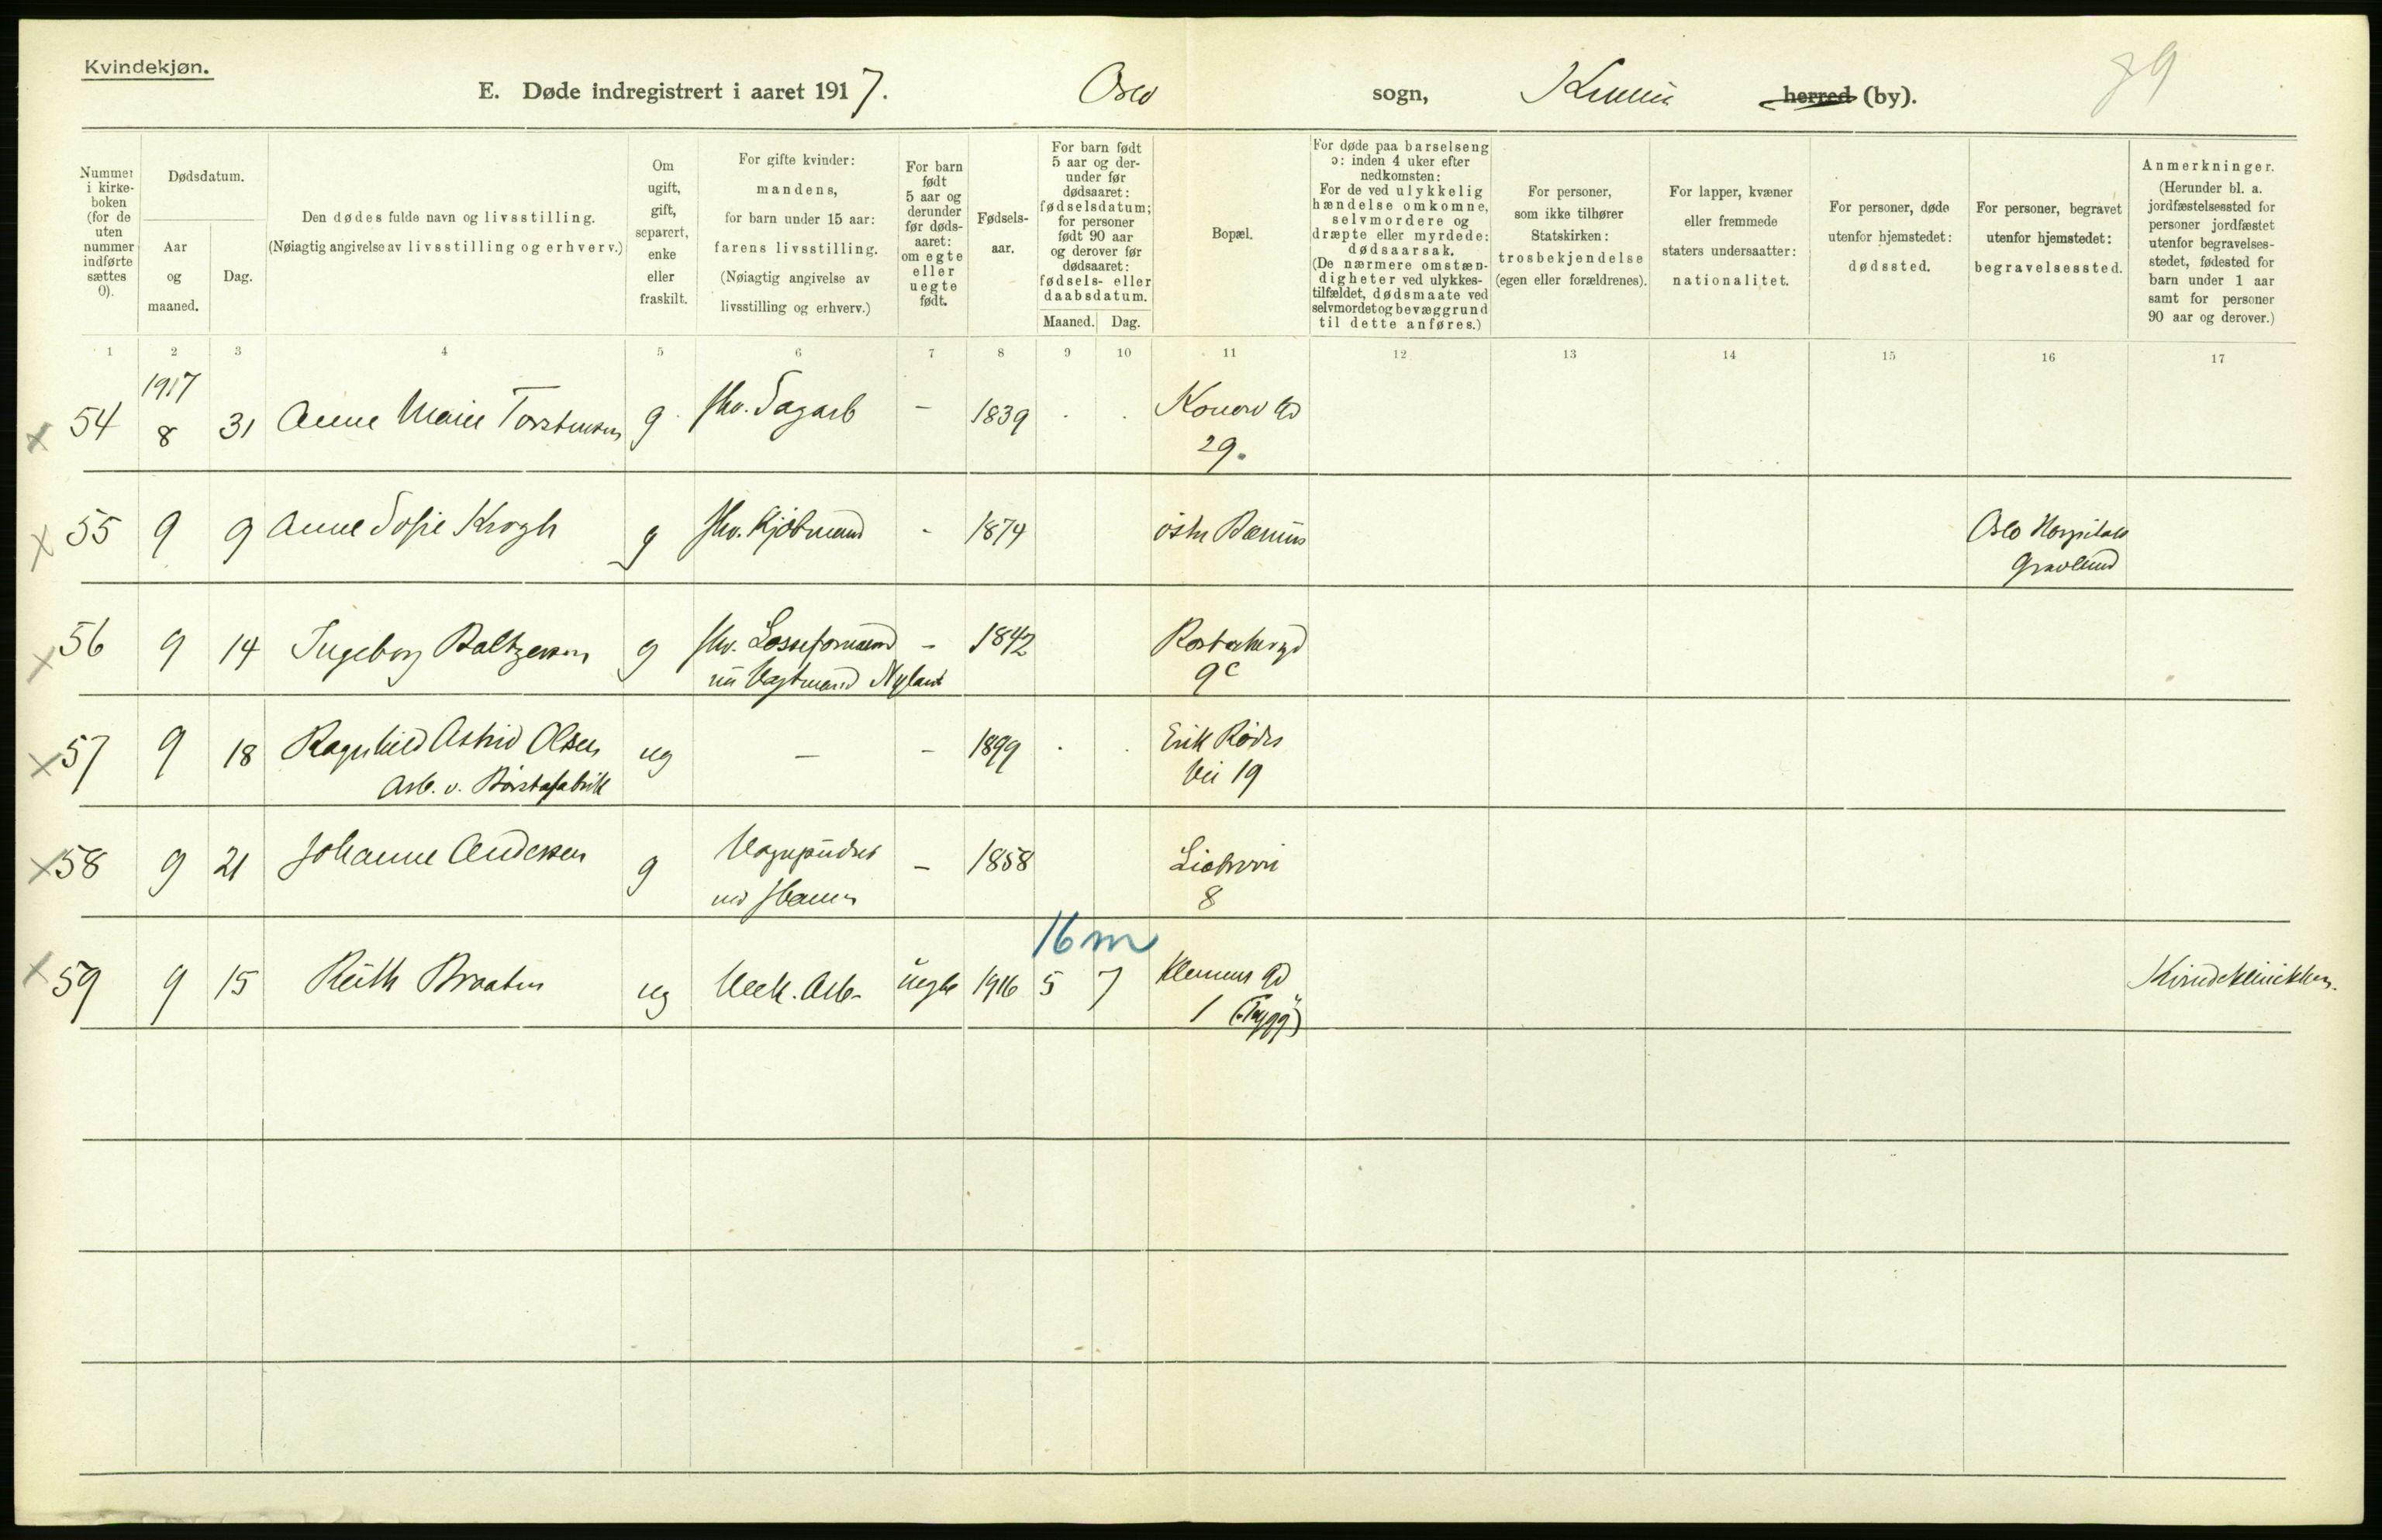 Kvindekjøn.
E. Døde indregistrert i aaret 1917. Oslo sogn, herred (by). 89
Nummer i kirkeboken (for de uten nummer indførte sættes 0).
Dødsdatum.
Aar og maaned.
Dag.
Den dødes fulde navn og livsstilling.
(Nøiagtig angivelse av livsstilling og erhverv.)
Om ugift, gift, separert, enke eller fraskilt.
For gifte kvinder: mandens, for barn under 15 aar: farens livsstilling.
(Nøiagtig angivelse av livsstilling og erhverv.)
For barn født 5 aar og derunder før dødsaaret: om egte eller uegte født.
Fødselsaar.
For barn født 5 aar og derunder før dødsaaret: fødselsdatum; for personer født 90 aar og derover før dødsaaret: fødsels- eller daabsdatum.
Maaned. Dag.
Bopæl.
For døde paa barselseng ɔ: inden 4 uker efter nedkomsten:
For de ved ulykkelig hændelse omkomne, selvmordere og dræpte eller myrdede: dødsaarsak.
(De nærmere omstændigheter ved ulykkestilfældet, dødsmaate ved selvmordet og bevæggrund til dette anføres.)
For personer, som ikke tilhører Statskirken: trosbekjendelse (egen eller forældrenes).
For lapper, kvæner eller fremmede staters undersaatter: nationalitet.
For personer, døde utenfor hjemstedet: dødssted.
For personer, begravet utenfor hjemstedet: begravelsessted.
Anmerkninger.
(Herunder bl. a. jordfæstelsessted for personer jordfæstet utenfor begravelsesstedet, fødested for barn under 1 aar samt for personer 90 aar og derover.)
1 2 3 4 5 6 7 8 9 10 11 12 13 14 15 16 17
1917
x 54 8 31 Anne Marie Torstensen g. fhv. Sagarb - 1839 . . Konow Gd
29.
x 55 9 9 Anne Sofie Krogh g fhv. Kjøbmand - 1874 østre Bærum Oslo Hospitals
Gravlund
x 56 9 14 Ingeborg Baltzersen g fhv. Losseformand - 1842
nu Vagtmand Nyland 9c
x 57 9 18 Ragnhild Astrid Olsen ug — - 1899 . . Erik Rødes
Arb. v. Børstefabrik Vei 19
x 58 9 21 Johanne Andersen g Vognpudser - 1858
8
16 m
x 59 9 15 Ruth Braaten ug Mek. Arb. uegte 1916 5 7 Klemens Gd Kvindeklinikken.
1 ("Trygg")